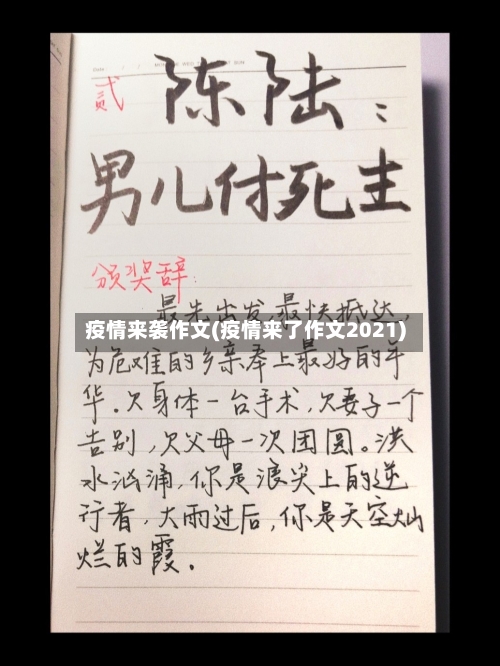 贰 陈陆:
男儿付死生
颁奖辞:
最先出发,最快抵达,
疫情来袭作文(疫情来了作文2021)
为危难的乡亲奉上最好的年
华。欠身体一台手术,欠妻子一个
告别,欠父母一次团圆。洪
水汹涌,你是浪尖上的逆
行者,大雨过后,你是天空灿
烂的霞。